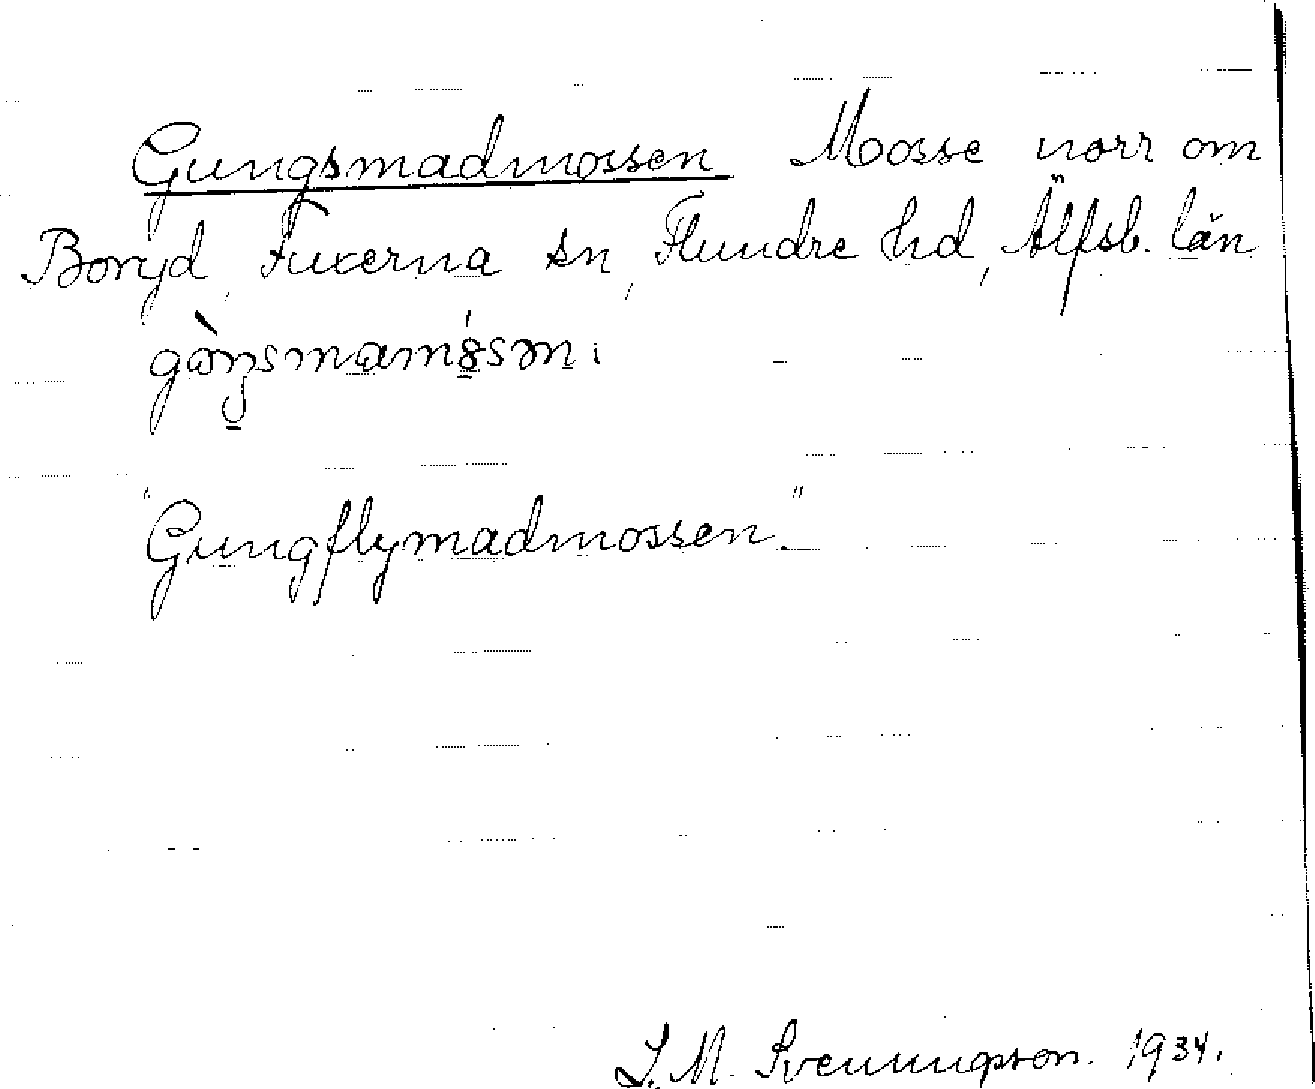 Gungsmadmossen Mosse norr om
Boryd, Fuxerna sn, Flundre hd, Älfsb. län
"Gungflymadmossen."
S. M. Svenungsson. 1934.